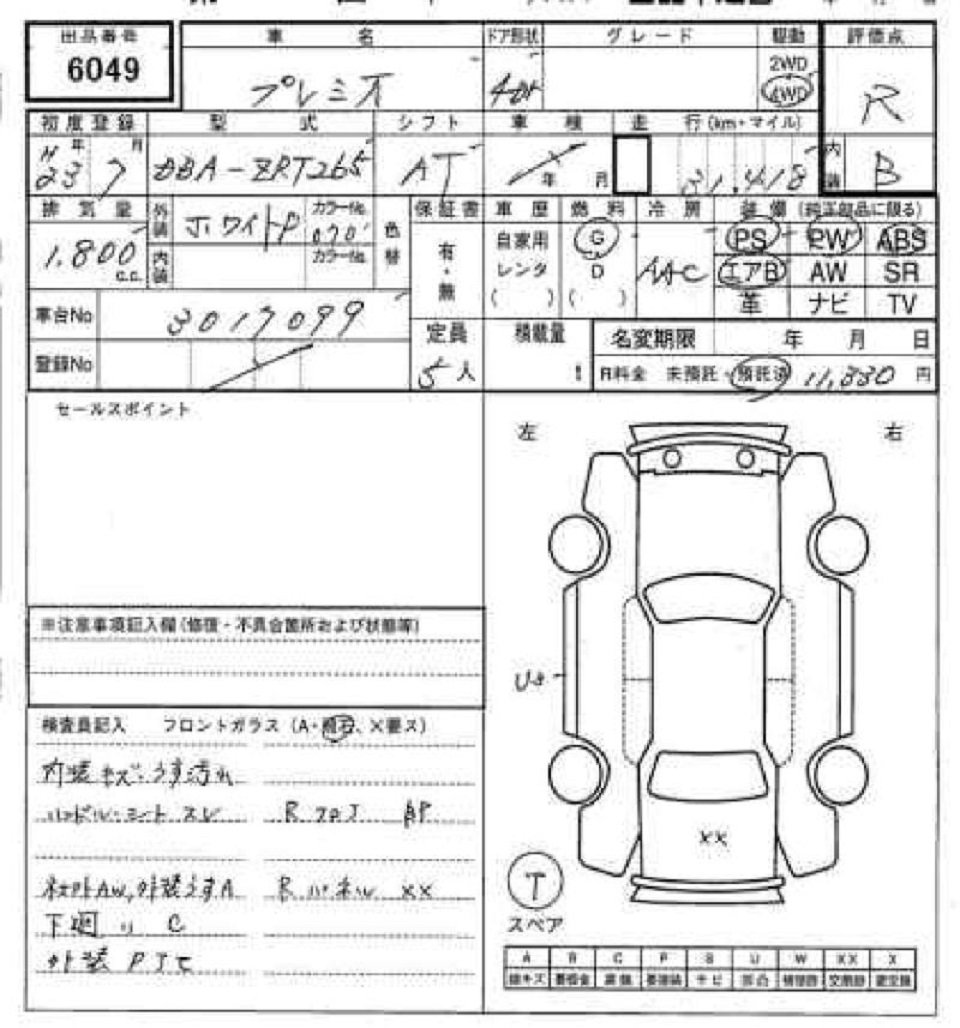 出品番号 車名 ドア形状 グレード 駆動 評価点
6049 プレミオ 4Dr 2WD 4WD R
初度登録 型式 シフト 車検 走行(km・マイル) 内装
H23年 7月 DBA-ZRT265 AT 年 月 31,418 B
排気量 外装 ホワイトP カラーNo. 070 色替 保証書 車歴 燃料 冷房 装備(純正部品に限る)
1,800 c.c. 内装 カラーNo. 有・無 自家用 G AAC PS PW ABS
レンタ D エアB AW SR
( ) ( ) 革 ナビ TV
車台No 3017099 定員 積載量 名変期限 年 月 日
登録No 5人 t R料金 未預託・預託済 11,330円
セールスポイント
左 右
※注意事項記入欄(修復・不具合箇所および状態等)
検査員記入 フロントガラス (A・飛石、X要ス)
内装キズ・うす汚れ
ハンドル・シート スレ R フロア
社外AW,外装うすA R パネル XX
下廻り C
外装 P
XX
T
スペア
A B C P S U W XX X
線キズ 要板金 腐蝕 要塗装 サビ 凹凸 補修跡 交換跡 要交換